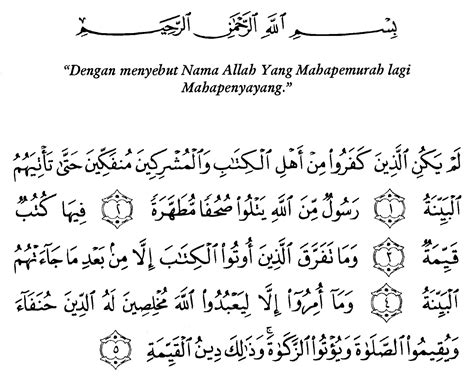 بِسْمِ اللَّهِ الرَّحْمَٰنِ الرَّحِيمِ
“Dengan menyebut Nama Allah Yang Mahapemurah lagi
Mahapenyayang.”
لَمْ يَكُنِ الَّذِينَ كَفَرُوا مِنْ أَهْلِ الْكِتَابِ وَالْمُشْرِكِينَ مُنفَكِّينَ حَتَّىٰ تَأْتِيَهُمُ
الْبَيِّنَةُ ١ رَسُولٌ مِّنَ اللَّهِ يَتْلُوا صُحُفًا مُّطَهَّرَةً ٢ فِيهَا كُتُبٌ
قَيِّمَةٌ ٣ وَمَا تَفَرَّقَ الَّذِينَ أُوتُوا الْكِتَابَ إِلَّا مِن بَعْدِ مَا جَاءَتْهُمُ
الْبَيِّنَةُ ٤ وَمَا أُمِرُوا إِلَّا لِيَعْبُدُوا اللَّهَ مُخْلِصِينَ لَهُ الدِّينَ حُنَفَاءَ
وَيُقِيمُوا الصَّلَوٰةَ وَيُؤْتُوا الزَّكَوٰةَ ۚ وَذَٰلِكَ دِينُ الْقَيِّمَةِ ٥